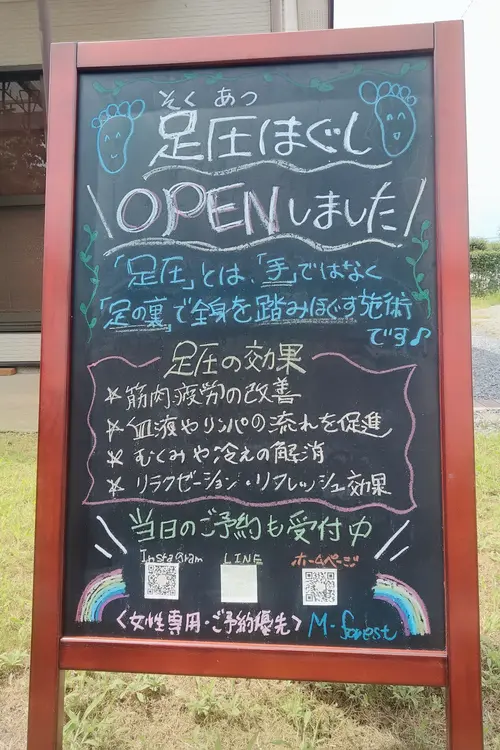 そくあつ
足圧ほぐし
\OPENしました/
「足圧」とは、「手」ではなく
「足の裏」で全身を踏みほぐす施術
です♪
足圧の効果
☆筋肉疲労の改善
☆血液やリンパの流れを促進
☆むくみや冷えの解消
☆リラクゼーション・リフレッシュ効果
当日のご予約も受付中
Instagram LINE ホームページ
<女性専用・ご予約優先> M-forest